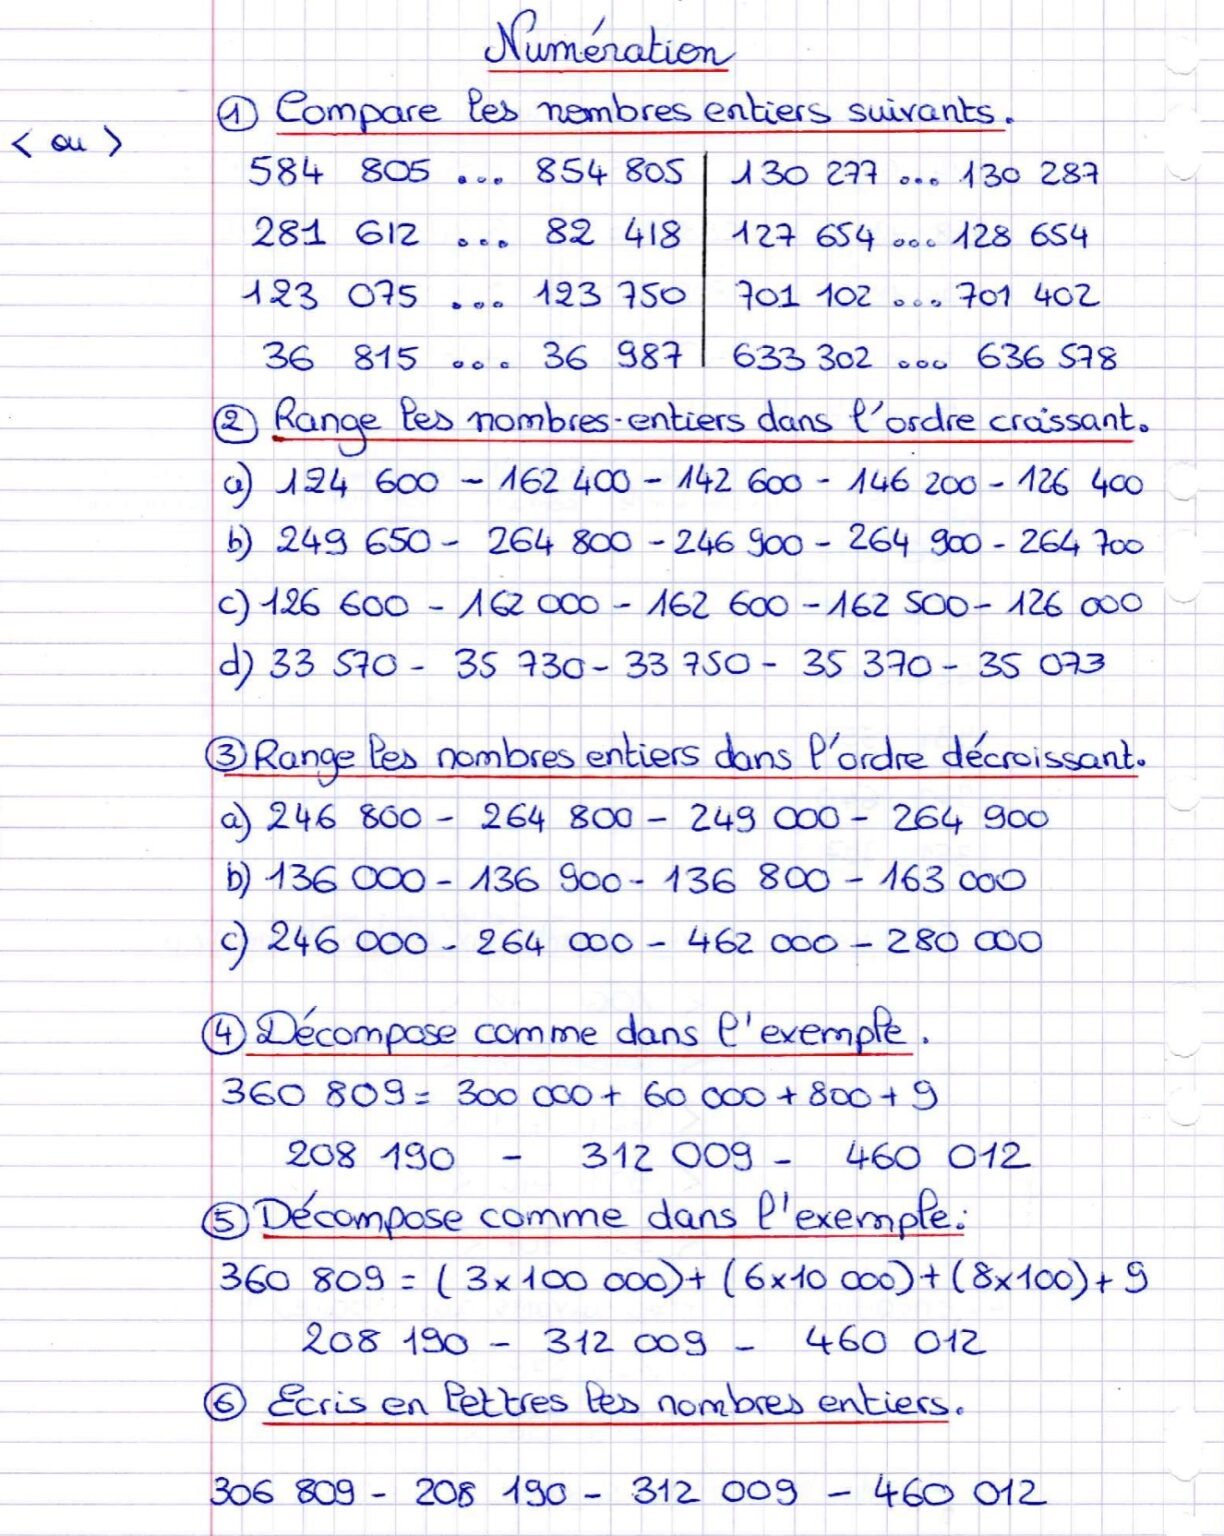 Numération
① Compare les nombres entiers suivants.
< ou >
584 805 ... 854 805 | 130 277 ... 130 287
281 612 ... 82 418 | 127 654 ... 128 654
123 075 ... 123 750 | 701 102 ... 701 402
36 815 ... 36 987 | 633 302 ... 636 578
② Range les nombres-entiers dans l'ordre croissant.
a) 124 600 - 162 400 - 142 600 - 146 200 - 126 400
b) 249 650 - 264 800 - 246 900 - 264 900 - 264 700
c) 126 600 - 162 000 - 162 600 - 162 500 - 126 000
d) 33 570 - 35 730 - 33 750 - 35 370 - 35 073
③ Range les nombres entiers dans l'ordre décroissant.
a) 246 800 - 264 800 - 249 000 - 264 900
b) 136 000 - 136 900 - 136 800 - 163 000
c) 246 000 - 264 000 - 462 000 - 280 000
④ Décompose comme dans l'exemple.
360 809 = 300 000 + 60 000 + 800 + 9
208 190 - 312 009 - 460 012
⑤ Décompose comme dans l'exemple:
360 809 = (3x100 000) + (6x10 000) + (8x100) + 9
208 190 - 312 009 - 460 012
⑥ Ecris en lettres les nombres entiers.
306 809 - 208 190 - 312 009 - 460 012